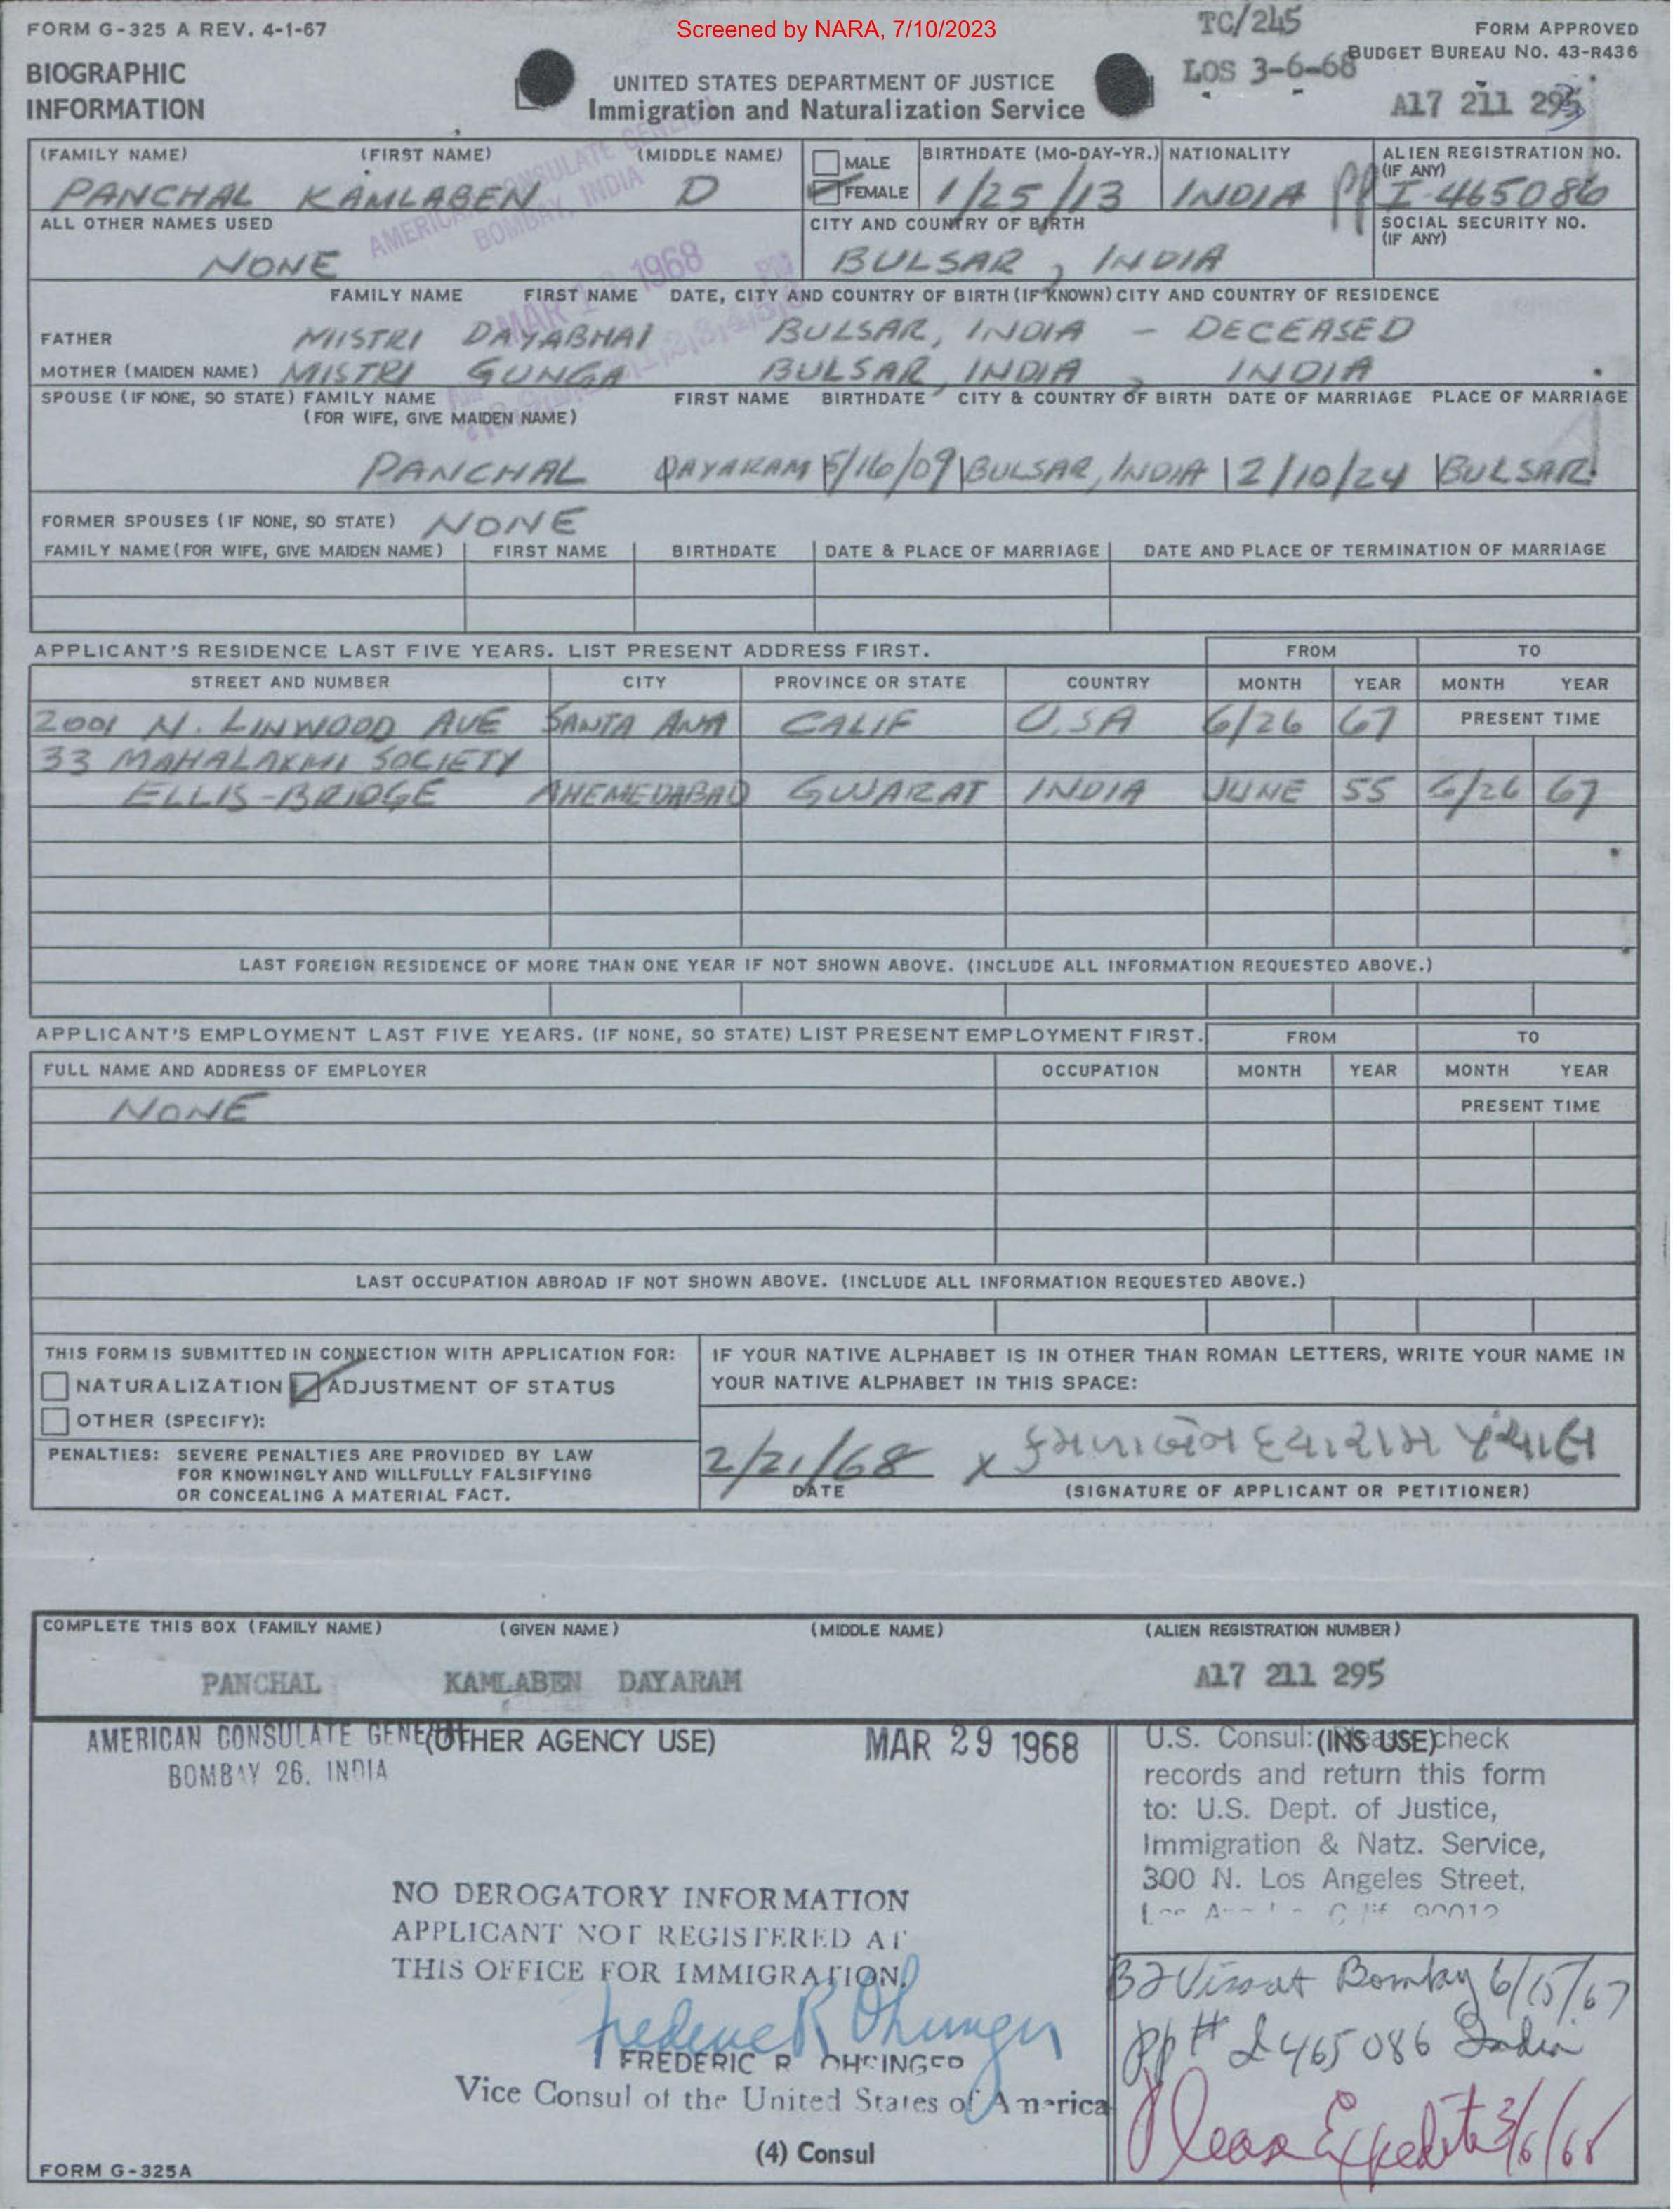 Screened by NARA, 7/10/2023
TC/245
FORM G-325 A REV. 4-1-67
FORM APPROVED
BUDGET BUREAU NO. 43-R436
BIOGRAPHIC
INFORMATION
UNITED STATES DEPARTMENT OF JUSTICE
Immigration and Naturalization Service
LOS 3-6-68
A17 211 295
(FAMILY NAME) (FIRST NAME) (MIDDLE NAME) MALE BIRTHDATE (MO-DAY-YR.) NATIONALITY ALIEN REGISTRATION NO. (IF ANY)
PANCHAL KAMLABEN D FEMALE 1/25/13 INDIA PP I-465086
AMERICAN CONSULATE GENERAL
BOMBAY, INDIA
ALL OTHER NAMES USED CITY AND COUNTRY OF BIRTH SOCIAL SECURITY NO. (IF ANY)
NONE BULSAR, INDIA
MAR 1968
PM
FAMILY NAME FIRST NAME DATE, CITY AND COUNTRY OF BIRTH (IF KNOWN) CITY AND COUNTRY OF RESIDENCE
FATHER MISTRI DAYABHAI BULSAR, INDIA - DECEASED
MOTHER (MAIDEN NAME) MISTRI GUNGA BULSAR, INDIA, INDIA
SPOUSE (IF NONE, SO STATE) FAMILY NAME FIRST NAME BIRTHDATE CITY & COUNTRY OF BIRTH DATE OF MARRIAGE PLACE OF MARRIAGE
(FOR WIFE, GIVE MAIDEN NAME)
PANCHAL DAYARAM 5/16/09 BULSAR, INDIA 2/10/24 BULSAR
FORMER SPOUSES (IF NONE, SO STATE) NONE
FAMILY NAME (FOR WIFE, GIVE MAIDEN NAME) FIRST NAME BIRTHDATE DATE & PLACE OF MARRIAGE DATE AND PLACE OF TERMINATION OF MARRIAGE
APPLICANT'S RESIDENCE LAST FIVE YEARS. LIST PRESENT ADDRESS FIRST. FROM TO
STREET AND NUMBER CITY PROVINCE OR STATE COUNTRY MONTH YEAR MONTH YEAR
2001 N. LINWOOD AVE SANTA ANA CALIF U.S.A 6/26 67 PRESENT TIME
33 MAHALAXMI SOCIETY
ELLIS-BRIDGE AHEMEDABAD GUJARAT INDIA JUNE 55 6/26 67
LAST FOREIGN RESIDENCE OF MORE THAN ONE YEAR IF NOT SHOWN ABOVE. (INCLUDE ALL INFORMATION REQUESTED ABOVE.)
APPLICANT'S EMPLOYMENT LAST FIVE YEARS. (IF NONE, SO STATE) LIST PRESENT EMPLOYMENT FIRST. FROM TO
FULL NAME AND ADDRESS OF EMPLOYER OCCUPATION MONTH YEAR MONTH YEAR
NONE PRESENT TIME
LAST OCCUPATION ABROAD IF NOT SHOWN ABOVE. (INCLUDE ALL INFORMATION REQUESTED ABOVE.)
THIS FORM IS SUBMITTED IN CONNECTION WITH APPLICATION FOR:
NATURALIZATION ADJUSTMENT OF STATUS
OTHER (SPECIFY):
IF YOUR NATIVE ALPHABET IS IN OTHER THAN ROMAN LETTERS, WRITE YOUR NAME IN
YOUR NATIVE ALPHABET IN THIS SPACE:
PENALTIES: SEVERE PENALTIES ARE PROVIDED BY LAW
FOR KNOWINGLY AND WILLFULLY FALSIFYING
OR CONCEALING A MATERIAL FACT.
2/21/68 x કમળાબેન દયારામ પંચાલ
DATE (SIGNATURE OF APPLICANT OR PETITIONER)
COMPLETE THIS BOX (FAMILY NAME) (GIVEN NAME) (MIDDLE NAME) (ALIEN REGISTRATION NUMBER)
PANCHAL KAMLABEN DAYARAM A17 211 295
AMERICAN CONSULATE GENERAL (OTHER AGENCY USE) MAR 29 1968
BOMBAY 26, INDIA
NO DEROGATORY INFORMATION
APPLICANT NOT REGISTERED AT
THIS OFFICE FOR IMMIGRATION.
FREDERIC R OHRINGER
Vice Consul of the United States of America
(4) Consul
FORM G-325A
(INS USE)
U.S. Consul: Please check
records and return this form
to: U.S. Dept. of Justice,
Immigration & Natz. Service,
300 N. Los Angeles Street,
Los Angeles Calif 90012
B2 Visa at Bombay 6/15/67
pp# I 465086 India
Please Expedite 3/6/68